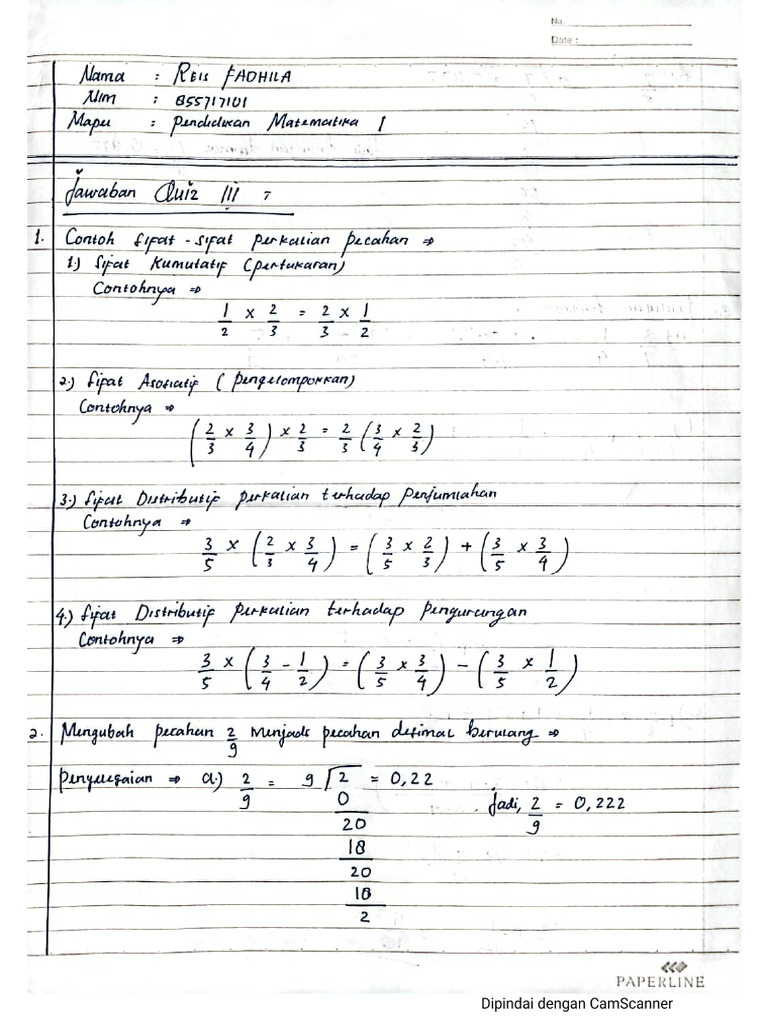 No.
Date :
Nama : REIS FADHILA
Nim : 855717101
Mapel : Pendidikan Matematika 1
Jawaban Quiz III :
1. Contoh sifat - sifat perkalian pecahan ⇒
1.) Sifat Kumutatif (pertukaran)
Contohnya ⇒
1/2 x 2/3 = 2/3 x 1/2
2.) Sifat Asosiatif (pengelompokkan)
Contohnya ⇒
(2/3 x 3/4) x 2/3 = 2/3 (3/4 x 2/3)
3.) Sifat Distributif perkalian terhadap Penjumlahan
Contohnya ⇒
3/5 x (2/3 x 3/4) = (3/5 x 2/3) + (3/5 x 3/4)
4.) Sifat Distributif Perkalian terhadap Pengurangan
Contohnya ⇒
3/5 x (3/4 - 1/2) = (3/5 x 3/4) - (3/5 x 1/2)
2. Mengubah pecahan 2/9 menjadi pecahan desimal berulang ⇒
Penyelesaian ⇒ a.) 2/9 = 9 √2 = 0,22
0
Jadi, 2/9 = 0,222
20
18
20
18
2
PAPERLINE
Dipindai dengan CamScanner